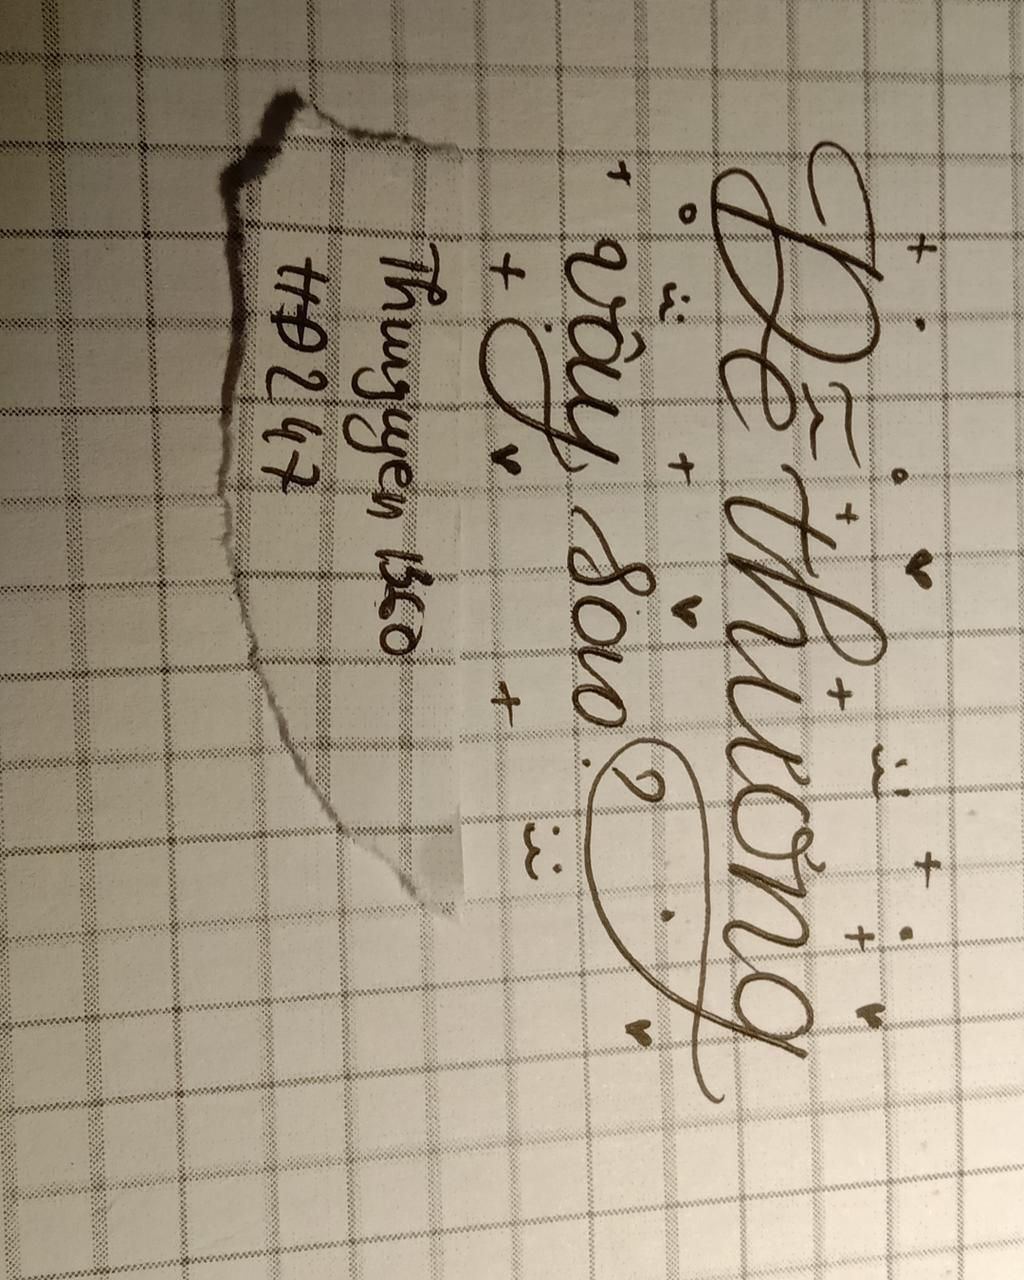 Dễ thường
vậy sao?
Thuyuyen BEO
HĐ247